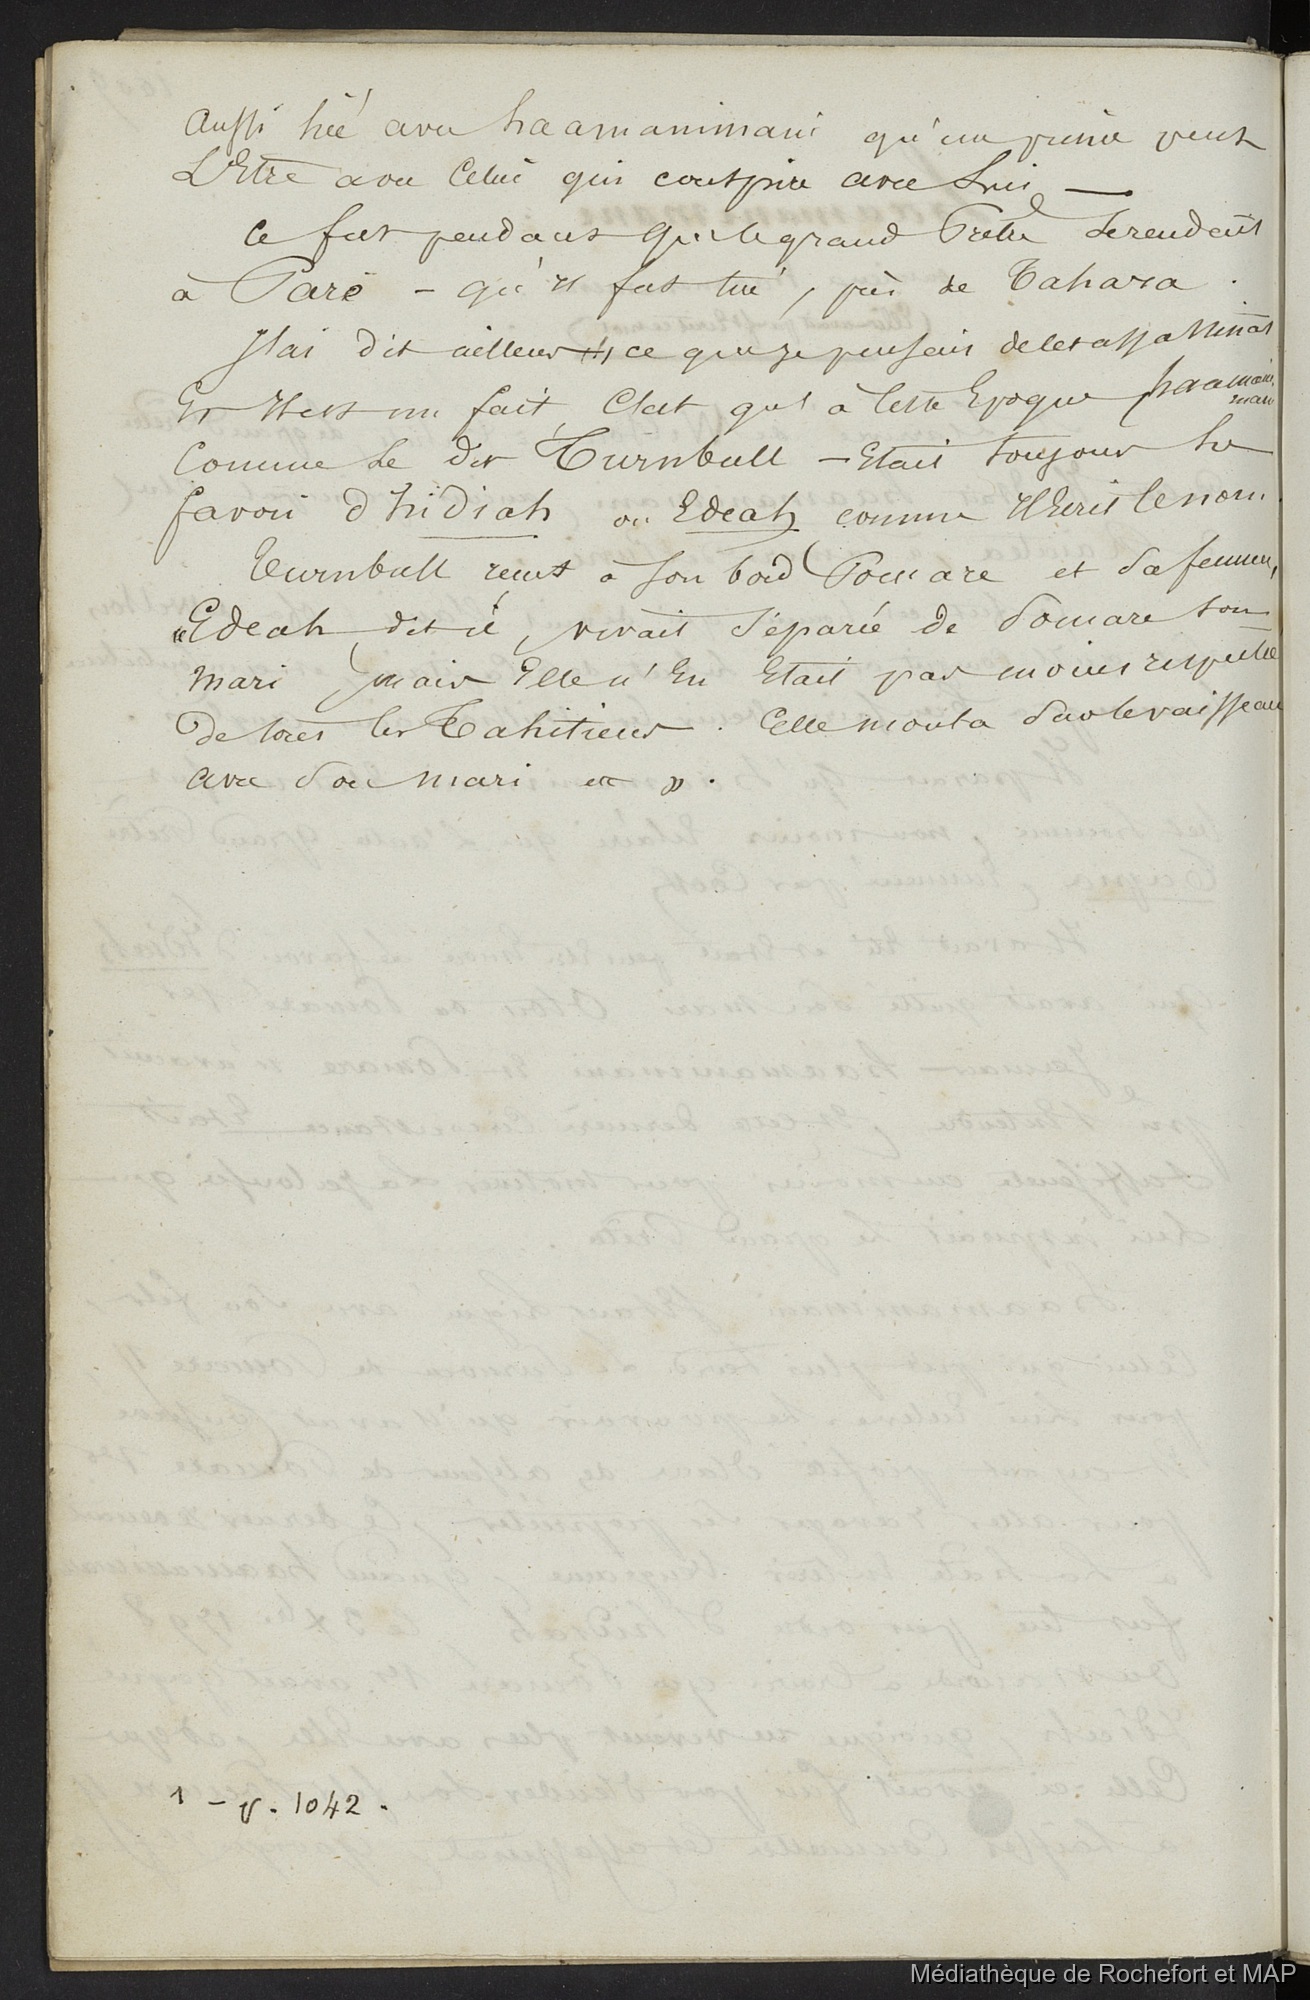 aussi lié avec haamanimani qu'un prince peut
L'Etre avec Celui qui conspire avec Lui —
Ce fut pendant que le grand Prêtre se rendait
à Paré – qu'il fut tué, près de Tahara.
J'ai dit ailleurs (1) ce que je pensais de cet assassinat
Er il est un fait, C'est qu'à cette Epoque haamani
mani
Comme le dit Turnbull – Etait toujours le
favori d'hidiah ou Edeah comme Il Ecrit le nom.
Turnbull reçut à son bord Pomare et sa femme,
"Edeah dit il, vivait séparée de Pomare son
mari, mais Elle n'En Etait pas moins respectée
De tous les Tahitiens. Elle monta sur le vaisseau
avec son mari etc".
1 – v. 1042.
Médiathèque de Rochefort et MAP